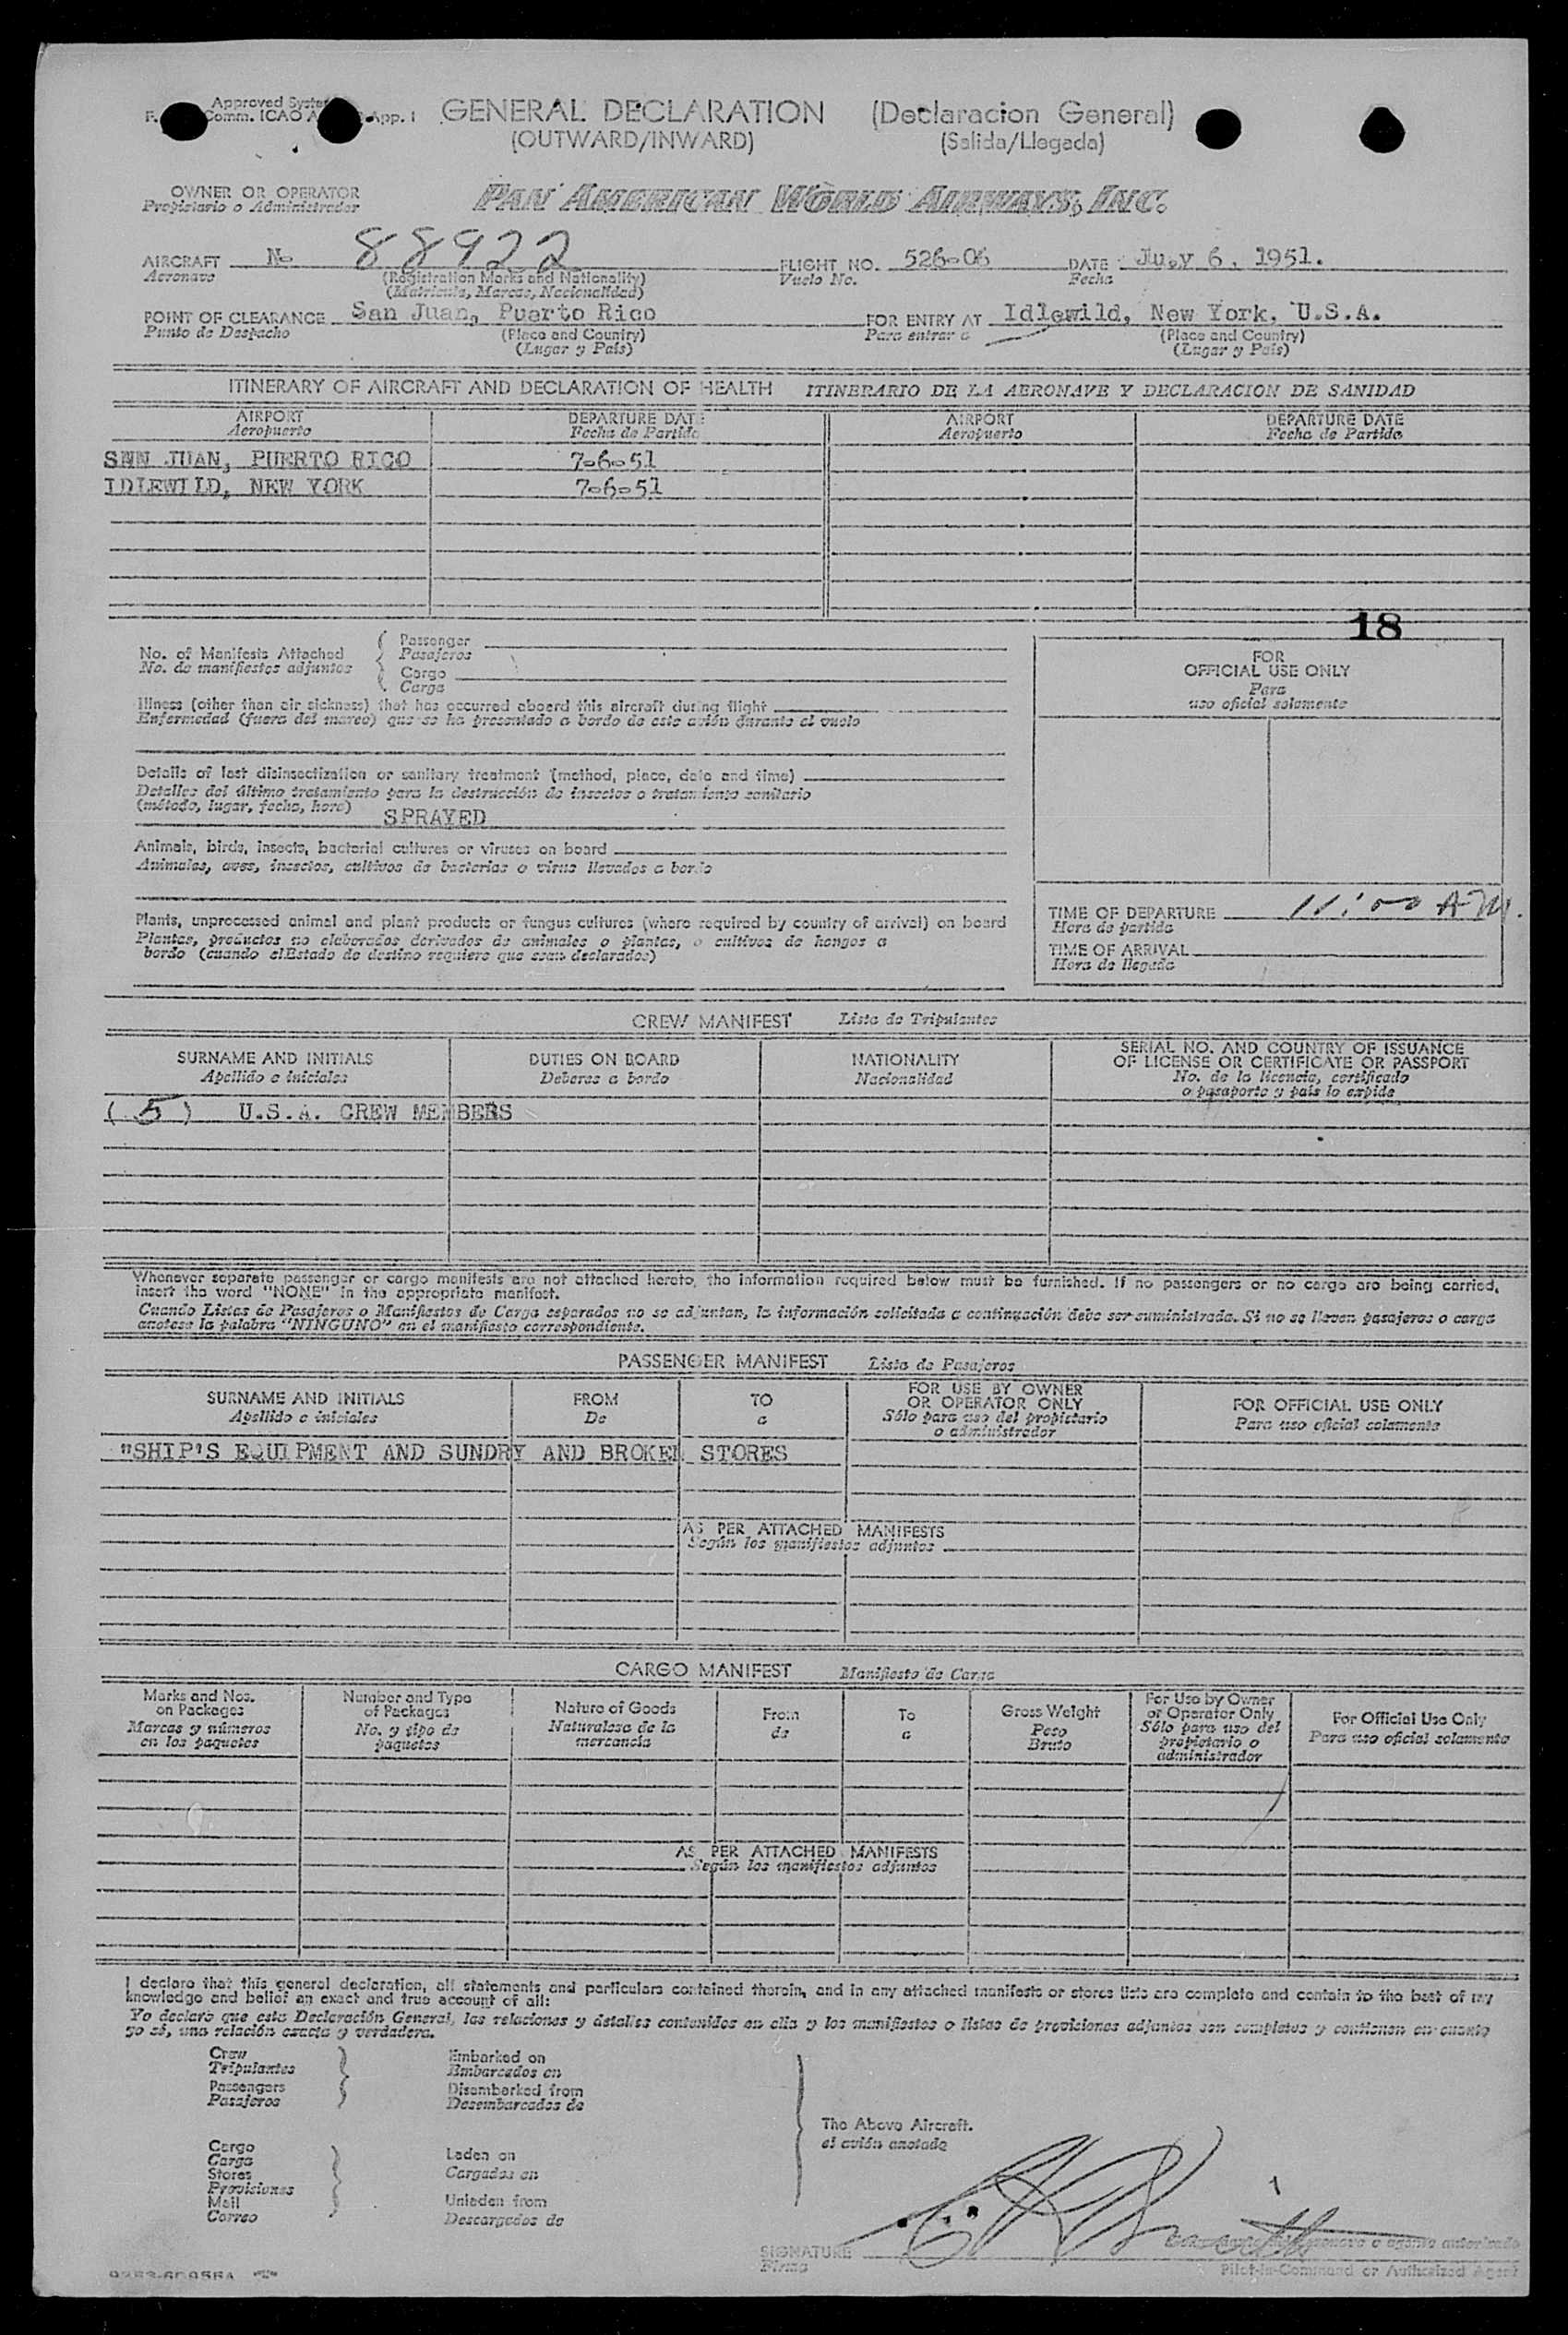 Approved System
Comm. ICAO A App. 1
GENERAL DECLARATION (Declaracion General)
(OUTWARD/INWARD) (Salida/Llegada)
OWNER OR OPERATOR PAN AMERICAN WORLD AIRWAYS, INC.
Propietario o Administrador
AIRCRAFT N- 88922 FLIGHT NO. 526-06 DATE Juy 6, 1951.
Aeronave (Registration Marks and Nationality) Vuelo No. Fecha
(Matricula, Marcas, Nacionalidad)
POINT OF CLEARANCE San Juan, Puerto Rico FOR ENTRY AT Idlewild, New York, U.S.A.
Punto de Despacho (Place and Country) Para entrar a (Place and Country)
(Lugar y País) (Lugar y País)
ITINERARY OF AIRCRAFT AND DECLARATION OF HEALTH ITINERARIO DE LA AERONAVE Y DECLARACION DE SANIDAD
AIRPORT DEPARTURE DATE AIRPORT DEPARTURE DATE
Aeropuerto Fecha de Partida Aeropuerto Fecha de Partida
SNN JUAN, PUERTO RICO 7-6-51
IDLEWILD, NEW YORK 7-6-51
18
No. of Manifests Attached Passenger
No. de manifiestos adjuntos Pasajeros
Cargo
Carga
FOR
OFFICIAL USE ONLY
Para
uso oficial solamente
Illness (other than air sickness) that has occurred aboard this aircraft during flight
Enfermedad (fuera del mareo) que se ha presentado a bordo de este avión durante el vuelo
Details of last disinsectization or sanitary treatment (method, place, date and time)
Detalles del último tratamiento para la destrucción de insectos o tratamiento sanitario
(método, lugar, fecha, hora) SPRAYED
Animals, birds, insects, bacterial cultures or viruses on board
Animales, aves, insectos, cultivos de bacterias o virus llevados a bordo
Plants, unprocessed animal and plant products or fungus cultures (where required by country of arrival) on board
Plantas, productos no elaborados derivados de animales o plantas, o cultivos de hongos a
bordo (cuando el Estado de destino requiere que sean declarados)
TIME OF DEPARTURE 11:00 AM.
Hora de partida
TIME OF ARRIVAL
Hora de llegada
CREW MANIFEST Lista de Tripulantes
SURNAME AND INITIALS DUTIES ON BOARD NATIONALITY SERIAL NO. AND COUNTRY OF ISSUANCE
OF LICENSE OR CERTIFICATE OR PASSPORT
Apellido e iniciales Deberes a bordo Nacionalidad No. de la licencia, certificado
o pasaporte y país lo expide
( 5 ) U.S.A. CREW MEMBERS
Whenever separate passenger or cargo manifests are not attached hereto, the information required below must be furnished. If no passengers or no cargo are being carried,
insert the word "NONE" in the appropriate manifest.
Cuando Listas de Pasajeros o Manifiestos de Carga separados no se adjuntan, la información solicitada a continuación debe ser suministrada. Si no se llevan pasajeros o carga
anotese la palabra "NINGUNO" en el manifiesto correspondiente.
PASSENGER MANIFEST Lista de Pasajeros
SURNAME AND INITIALS FROM TO FOR USE BY OWNER
OR OPERATOR ONLY FOR OFFICIAL USE ONLY
Apellido e iniciales De a Sólo para uso del propietario
o administrador Para uso oficial solamente
"SHIP'S EQUIPMENT AND SUNDRY AND BROKEN STORES
AS PER ATTACHED MANIFESTS
Según los manifiestos adjuntos
CARGO MANIFEST Manifiesto de Carga
Marks and Nos.
on Packages
Marcas y números
en los paquetes
Number and Type
of Packages
No. y tipo de
paquetes
Nature of Goods
Naturalesa de la
mercancía
From
de
To
a
Gross Weight
Peso
Bruto
For Use by Owner
or Operator Only
Sólo para uso del
propietario o
administrador
For Official Use Only
Para uso oficial solamente
AS PER ATTACHED MANIFESTS
Según los manifiestos adjuntos
I declare that this general declaration, all statements and particulars contained therein, and in any attached manifests or stores lists are complete and contain to the best of my
knowledge and belief an exact and true account of all:
Yo declaro que esta Declaración General, las relaciones y detalles contenidos en ella y los manifiestos o listas de provisiones adjuntas son completos y contienen en cuanto
yo sé, una relación exacta y verdadera.
Crew Embarked on
Tripulantes Embarcados en
Passengers Disembarked from
Pasajeros Desembarcados de
The Above Aircraft.
el avión anotado
Cargo
Carga Laden on
Stores Cargados en
Provisiones
Mail Unladen from
Correo Descargados de
SIGNATURE
Firma
Pilot-in-Command or Authorized Agent